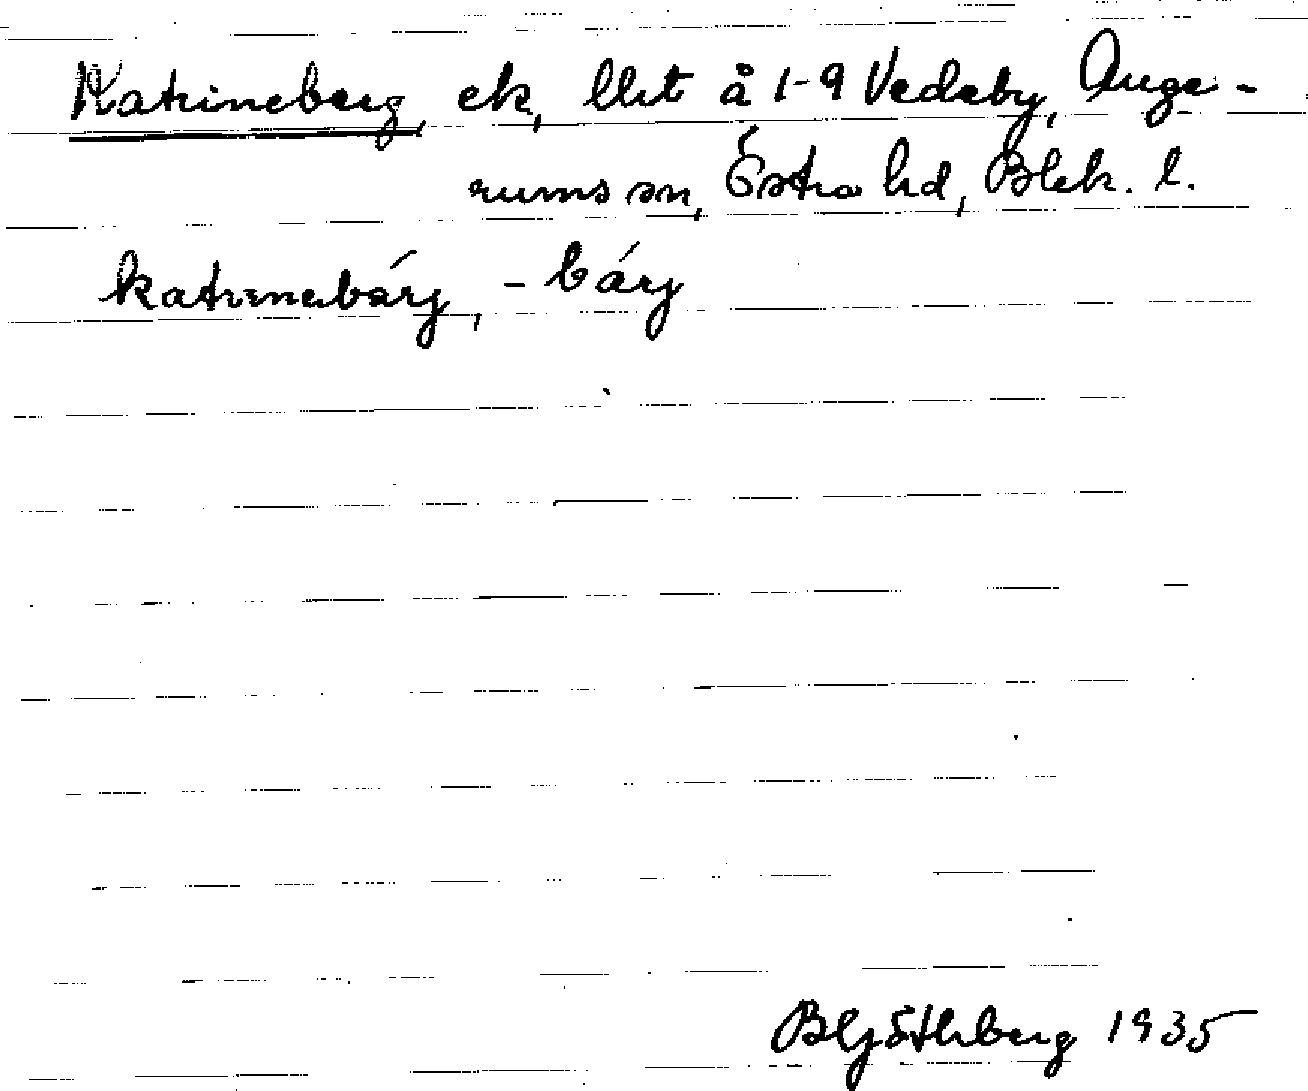 Katrineberg, ek, llht å 1-9 Vedeby, Auge-
rums sn, Östra hd, Blek. l.
katrinebárj, -bárj
1935